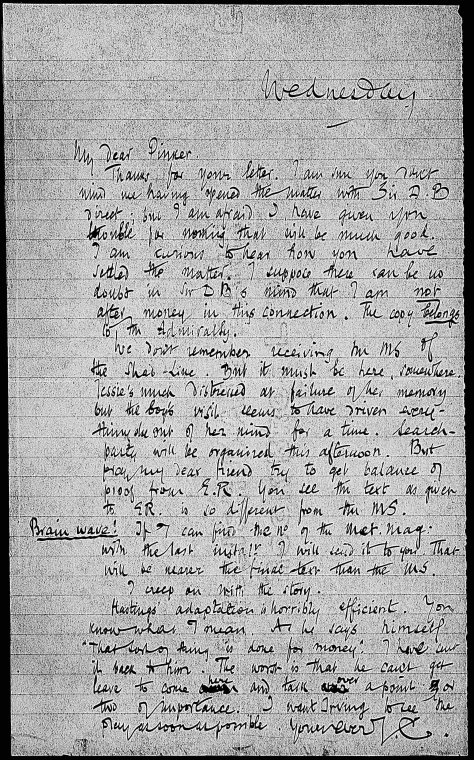 Wednesday
My dear Pinker.
Thanks for your letter. I am sure you don't
mind me having opened the matter with Sir D. B
direct; but I am afraid I have given you
trouble for nothing that will be much good.
I am curious to hear how you have
settled the matter. I suppose there can be no
doubt in Sir D B's mind that I am not
after money in this connection. The copy belongs
to the Admiralty.
We don't remember receiving the MS of
the Shad-Line. But it must be here, somewhere.
Jessie's much distressed at failure of her memory
but the boy's visit seems to have driven every-
thing else out of her mind for a time. Search-
party will be organised this afternoon. But
pray my dear friend try to get balance of
proof from E.R. You see the text as given
to E.R. is so different from the MS.
Brain wave! If I can find the No of the Met. Mag:
with the last inst: I will send it to you. That
will be nearer the final text than the MS.
I creep on with the story.
Hastings' adaptation is horribly efficient. You
know what I mean. As he says himself
"That sort of thing is done for money." I have sent
it back to him. The worst is that he can't get
leave to come here and talk over a point or
two of importance. I want Irving to see the
play as soon as possible. Yours ever J C.